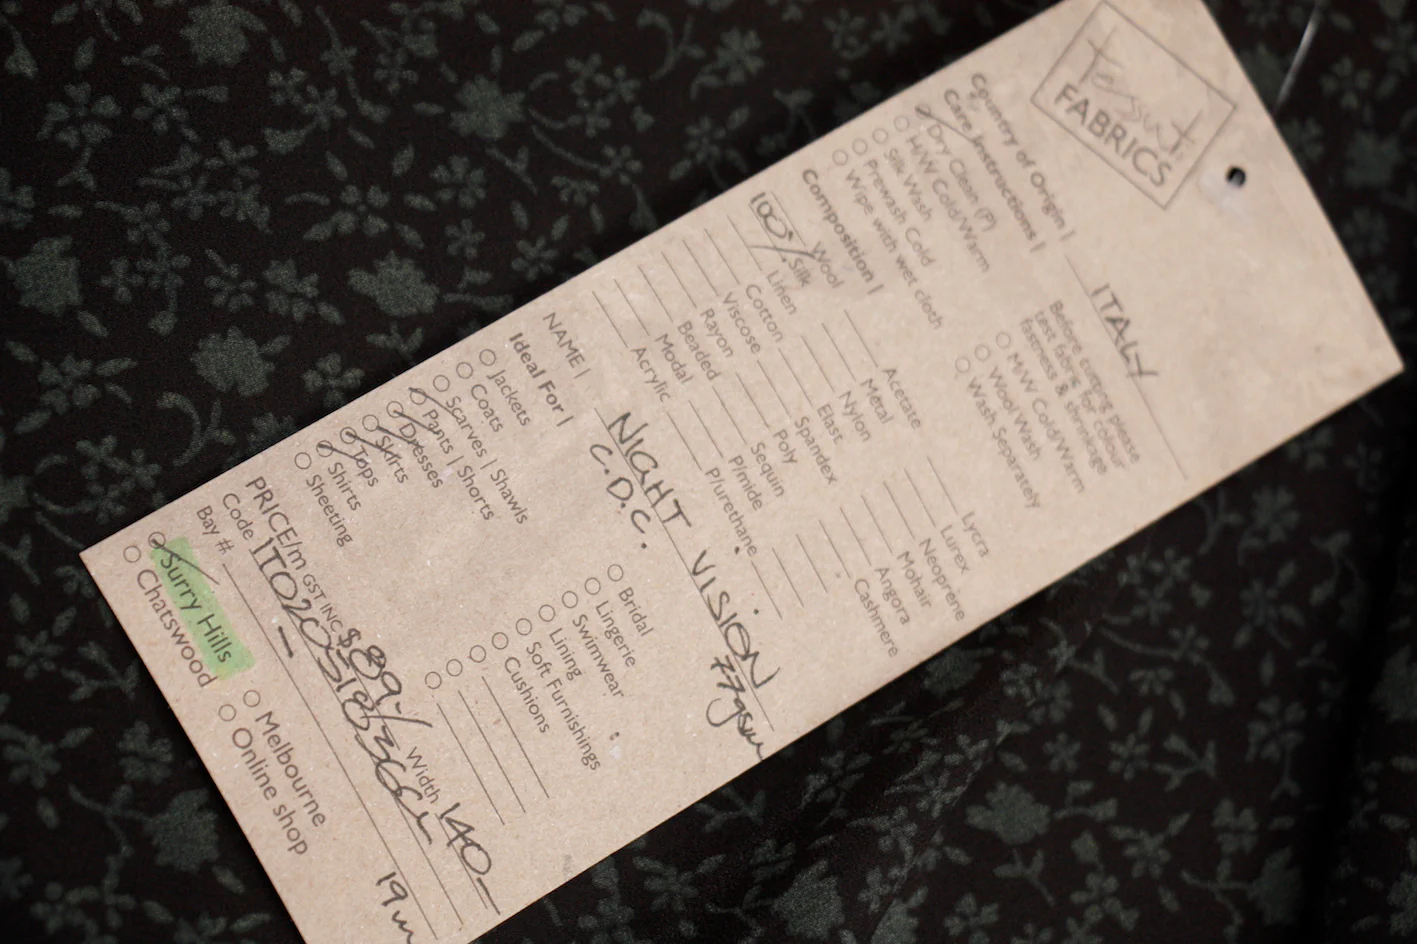 tessuti
FABRICS
Country of Origin | ITALY
Care Instructions |
Dry Clean (P)
H/W Cold/Warm
Silk Wash
Prewash Cold
Wipe with wet cloth
Before cutting please
test fabric for colour
fastness & shrinkage
M/W Cold/Warm
Wool Wash
Wash Separately
Composition |
Wool
100% Silk
Linen
Cotton
Viscose
Rayon
Beaded
Modal
Acrylic
Acetate
Metal
Nylon
Elast
Spandex
Poly
Sequin
P/mide
P/urethane
Lycra
Lurex
Neoprene
Mohair
Angora
Cashmere
NAME | NIGHT VISION
C.D.C. 77gsm
Ideal For |
Jackets
Coats
Scarves | Shawls
Pants | Shorts
Dresses
Skirts
Tops
Shirts
Sheeting
Bridal
Lingerie
Swimwear
Lining
Soft Furnishings
Cushions
PRICE/m GST INC $89-/ Width 140
Code
Bay # 19m
Surry Hills
Chatswood
Melbourne
Online shop